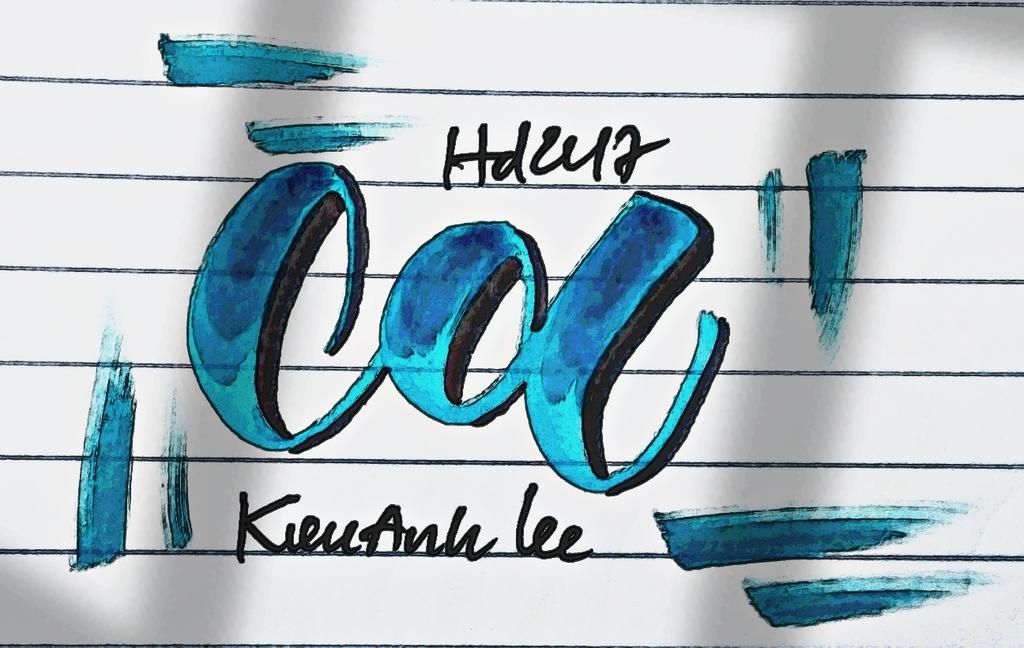 Hd2417
Ca
KienAnh lee